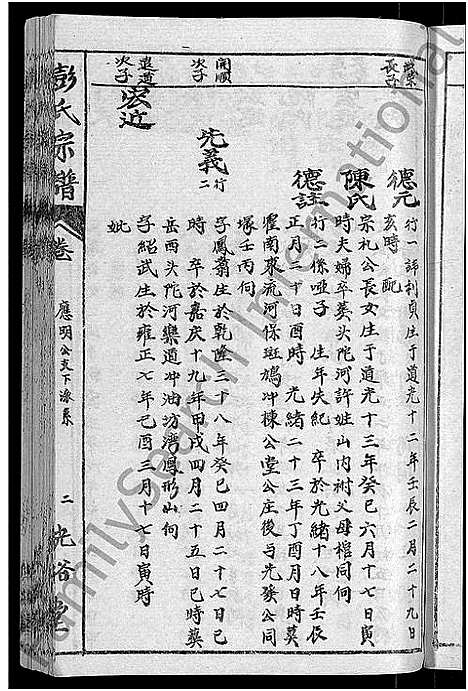 長子
德元
行一諱利貞生于道光十二年壬辰二月二十九日
亥時 配
陳氏
宗礼公長女生于道光十三年癸巳六月十七日寅
時夫婦卒葬头陀河許姓山内树父母棺同向
德註
行二係哑子 生年失紀 卒於光緒十八年壬辰
正月二十日酉時 光緒二十三年丁酉月日時葬
霍南東流河保斑鳩冲棟公堂公庄後与先發公同
塚壬丙向
開順
次子
先義
行二
字鳳翥生於乾隆三十八年癸巳四月二十七日巳
時 卒於嘉庆十九年甲戌四月二十五日巳時葬
岳西头陀河樂道冲油坊湾鳳形山向
進道
次子
宏近
字紹武生於雍正七年己酉三月十七日寅時
妣
彭氏宗譜
卷
應明公支下派系
二
光裕堂
FamilySearch International